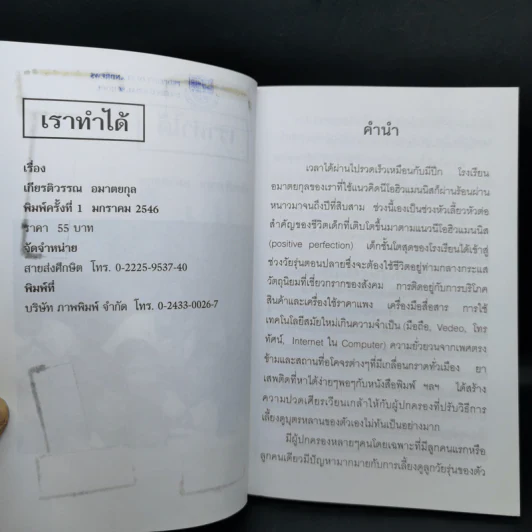 เราทำได้
เรื่อง
เกียรติวรรณ อมาตยกุล
พิมพ์ครั้งที่ 1 มกราคม 2546
ราคา 55 บาท
จัดจำหน่าย
สายส่งศึกษิต โทร. 0-2225-9537-40
พิมพ์ที่
บริษัท ภาพพิมพ์ จำกัด โทร. 0-2433-0026-7
คำนำ
เวลาได้ผ่านไปรวดเร็วเหมือนกับมีปีก โรงเรียน
อมาตยกุลของเราที่ใช้แนวคิดนีโอฮิวแมนนิสก็ผ่านร้อนผ่าน
หนาวมาจนถึงปีที่สิบสาม ช่วงนี้เองเป็นช่วงหัวเลี้ยวหัวต่อ
สำคัญของชีวิตเด็กที่เติบโตขึ้นมาตามแนวนีโอฮิวแมนนิส
(positive perfection) เด็กชั้นโตสุดของโรงเรียนได้เข้าสู่
ช่วงวัยรุ่นตอนปลายซึ่งจะต้องใช้ชีวิตอยู่ท่ามกลางกระแส
วัตถุนิยมที่เชี่ยวกรากของสังคม การติดอยู่กับการบริโภค
สินค้าและเครื่องใช้ราคาแพง เครื่องมือสื่อสาร การใช้
เทคโนโลยีสมัยใหม่เกินความจำเป็น (มือถือ, Vedeo, โทร
ทัศน์, Internet ใน Computer) ความยั่วยวนจากเพศตรง
ข้ามและสถานที่อโคจรต่างๆที่มีเกลื่อนกราดทั่วเมือง ยา
เสพติดที่หาได้ง่ายๆพอๆกับหนังสือพิมพ์ ฯลฯ ได้สร้าง
ความปวดเศียรเวียนเกล้าให้กับผู้ปกครองที่ปรับวิธีการ
เลี้ยงดูบุตรหลานของตัวเองไม่ทันเป็นอย่างมาก
มีผู้ปกครองหลายๆคนโดยเฉพาะที่มีลูกคนแรกหรือ
ลูกคนเดียวมีปัญหามากมายกับการเลี้ยงดูลูกวัยรุ่นของตัว